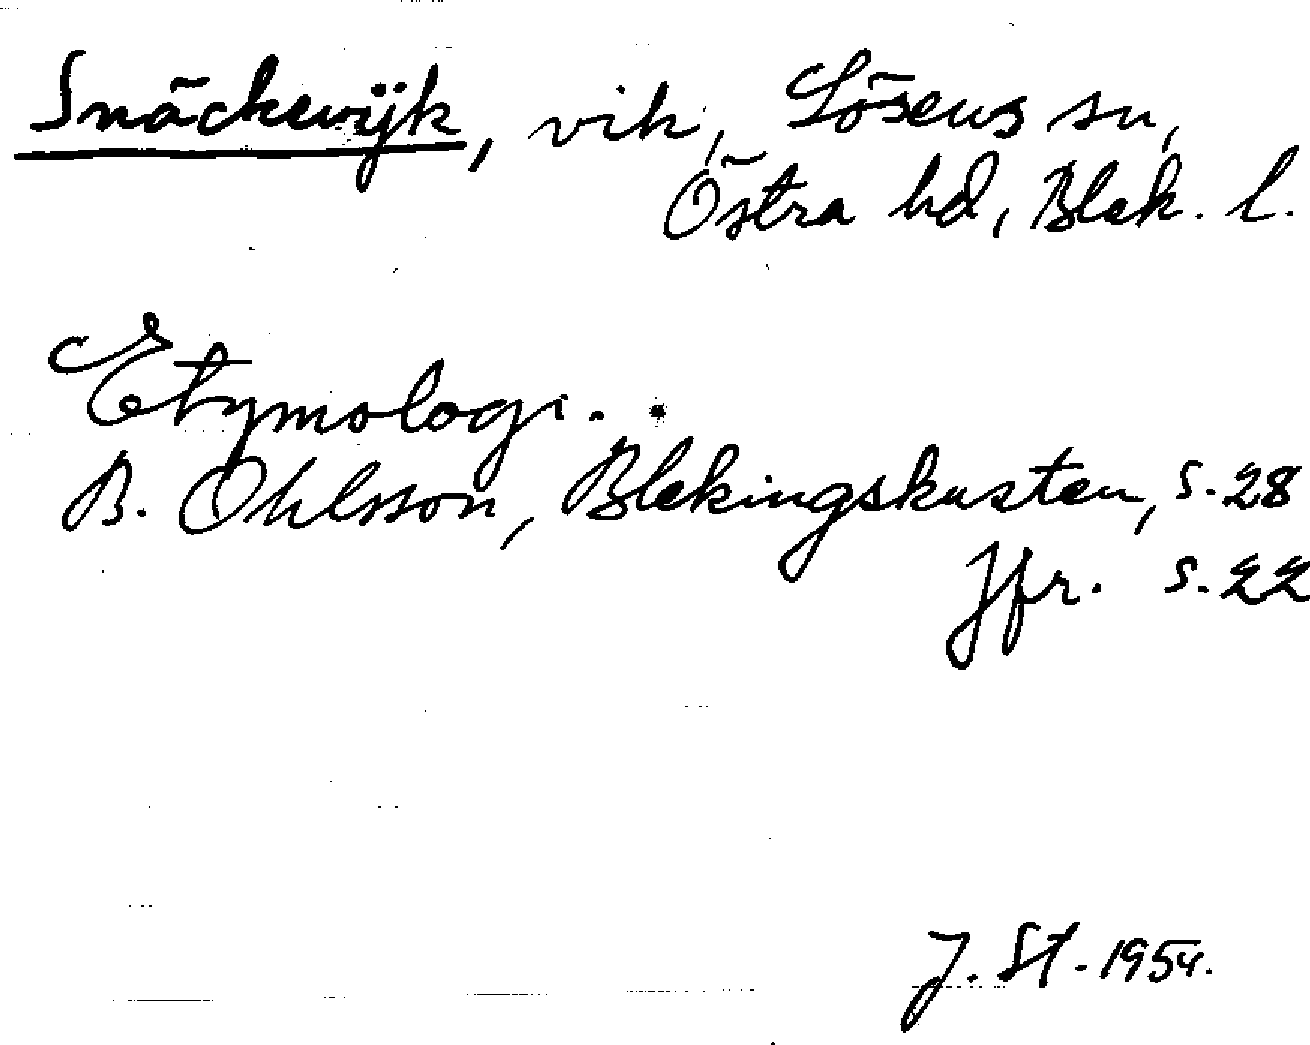 Snäckewijk, vik, Lösens sn,
Östra hd, Blek. l.
Etymologi.
B. Ohlsson, Blekingskusten, s. 28
Jfr. s. 22
J. St. 1954.